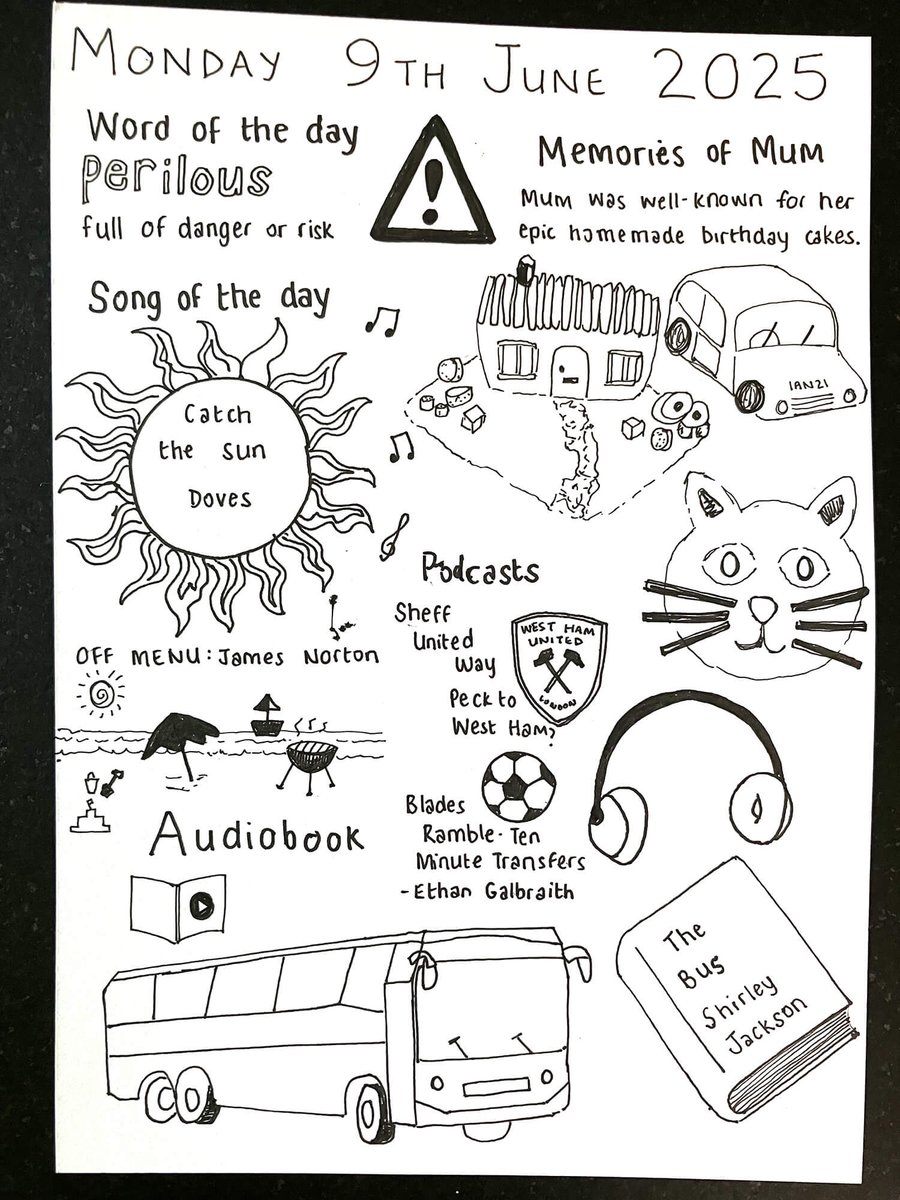 MONDAY 9TH JUNE 2025
Word of the day
perilous
full of danger or risk
Memories of Mum
Mum was well-known for her
epic homemade birthday cakes.
IAN21
Song of the day
Catch
the sun
Doves
OFF MENU: James Norton
Podcasts
Sheff
United
Way
Peck to
West Ham?
WEST HAM
UNITED
LONDON
Blades
Ramble - Ten
Minute Transfers
- Ethan Galbraith
Audiobook
The
Bus
Shirley
Jackson